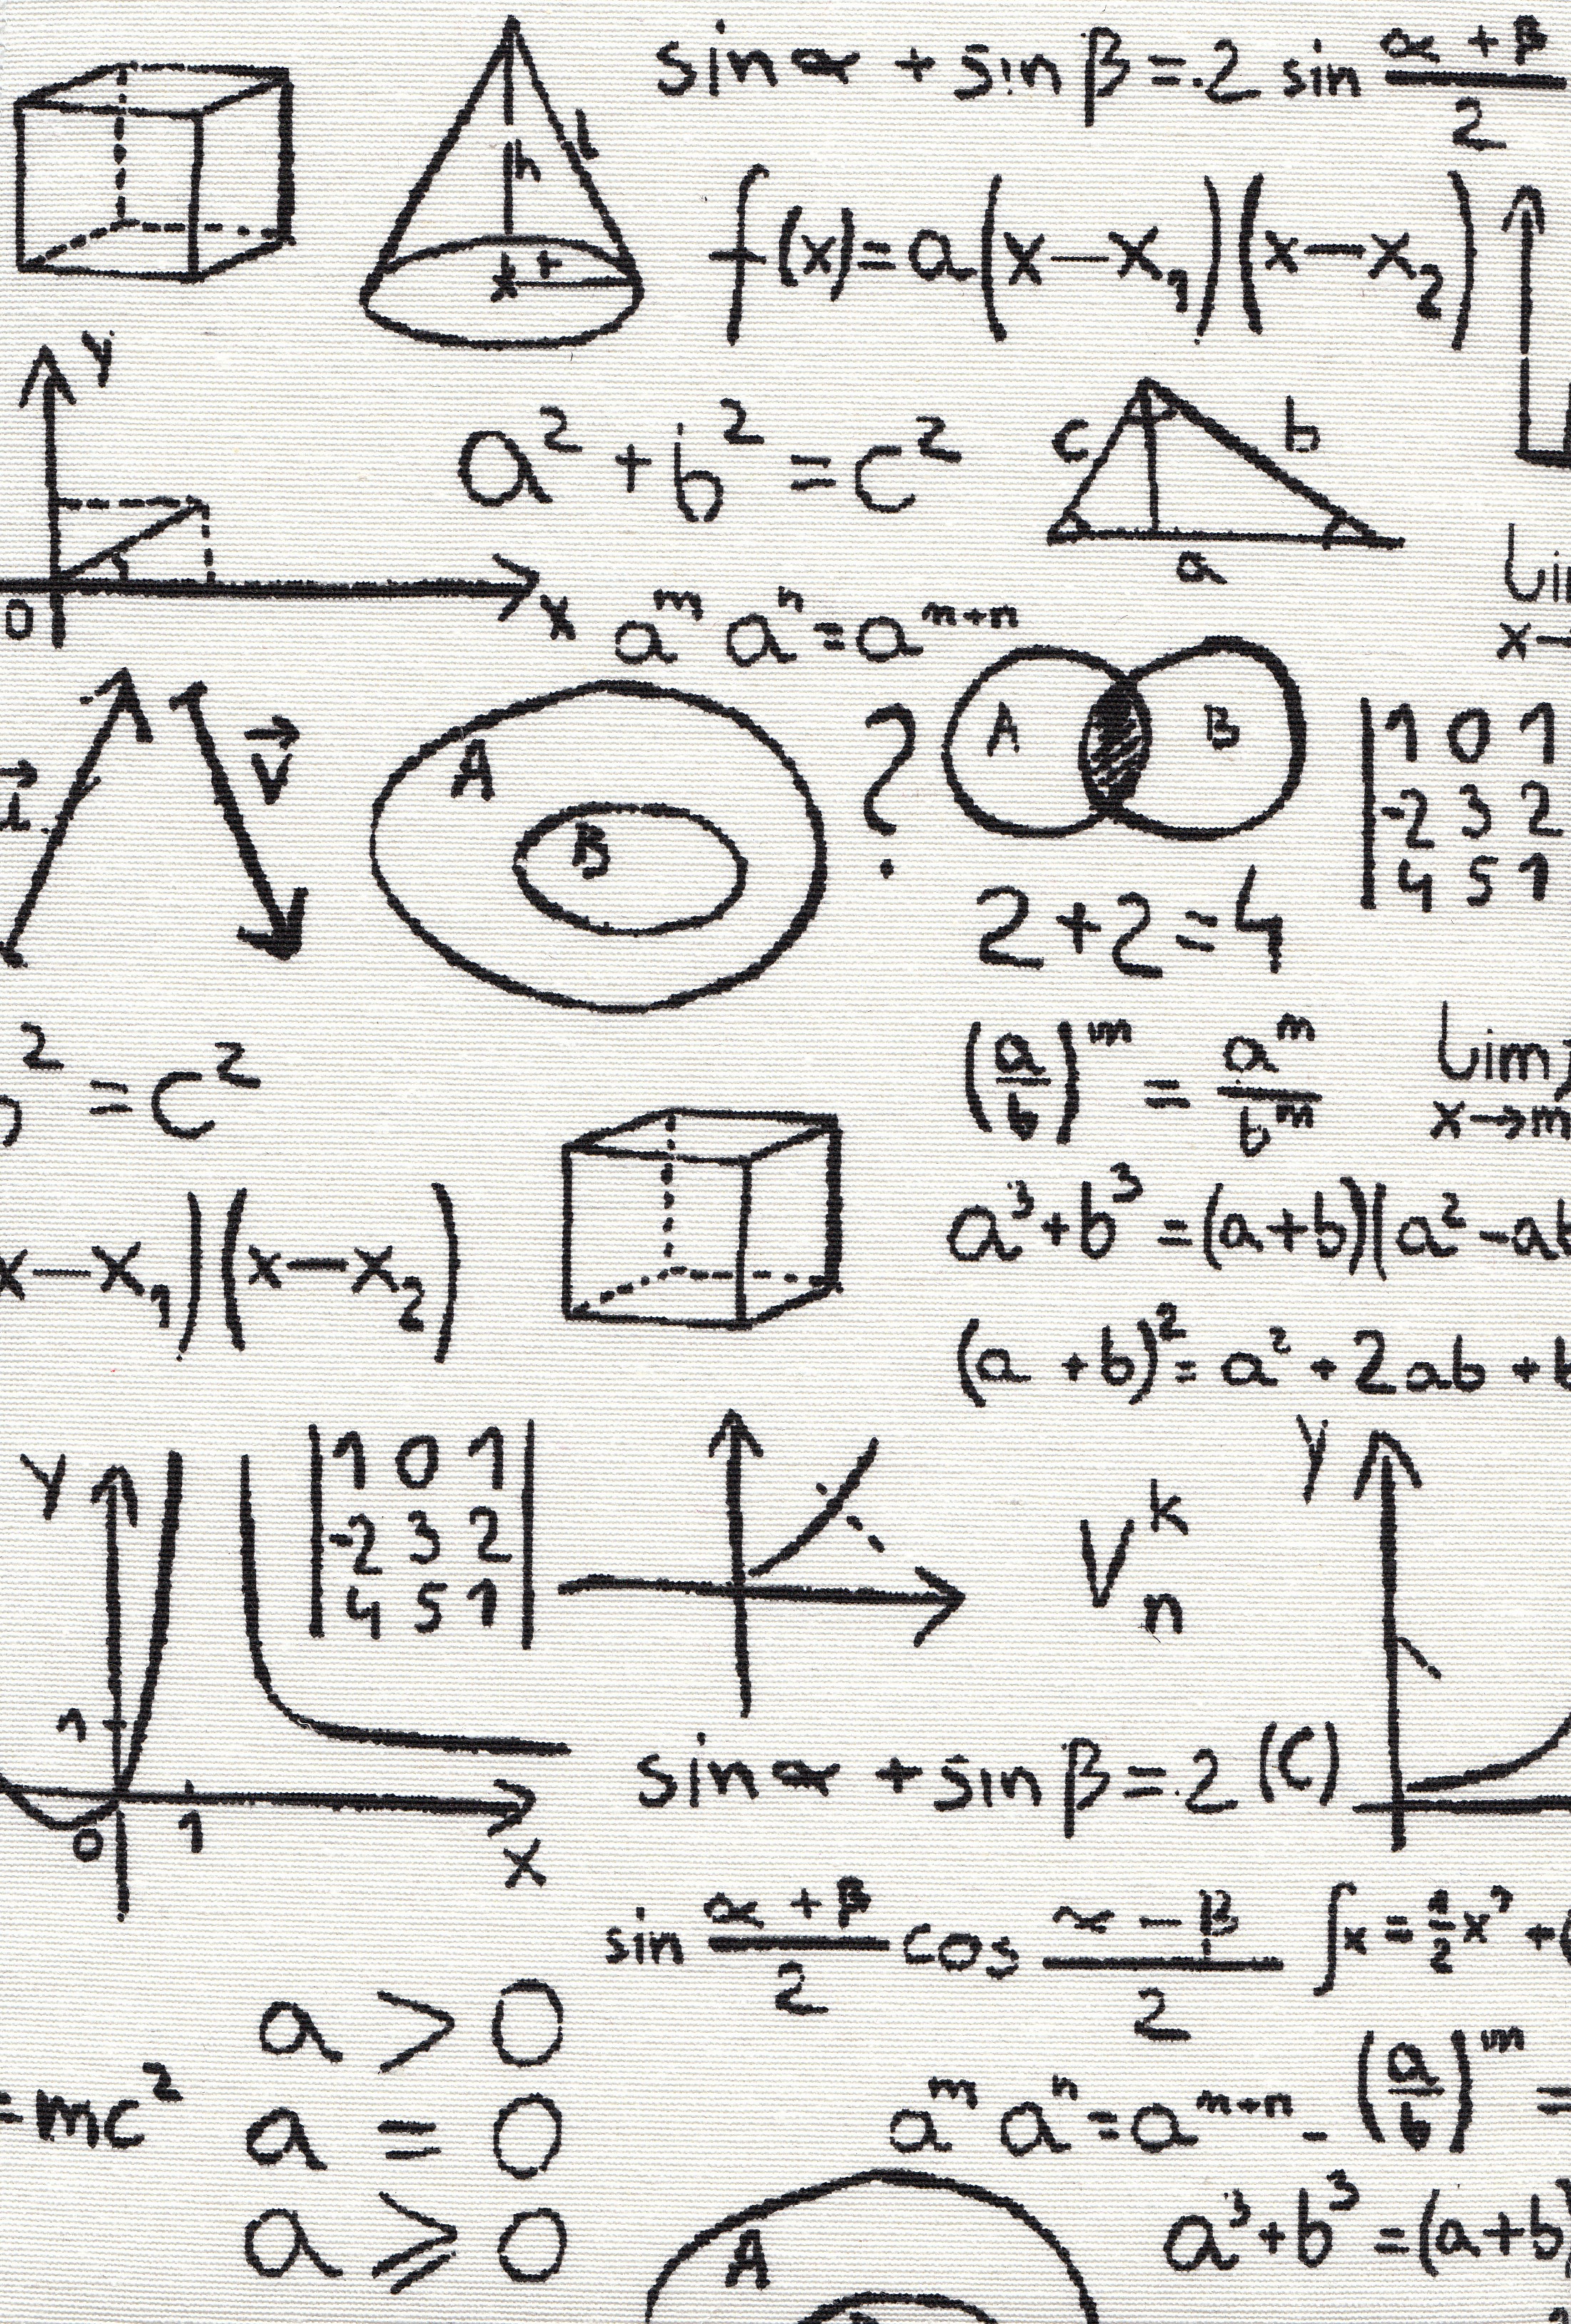 sin α + sin β = 2 sin (α + β)/2
h l
r
f(x) = a(x–x₁)(x–x₂)
y
a² + b² = c²
c b
a
0 x
aᵐ aⁿ = aᵐ⁺ⁿ
x→
v⃗
A
B
?
A B
|1 0 1
-2 3 2
4 5 1
2+2=4
² = c²
(a/b)ᵐ = aᵐ/bᵐ
Lim
x→m
a³+b³ = (a+b)(a²-ab
x–x₁)(x–x₂)
(a +b)² = a² + 2ab +
y
|1 0 1|
|-2 3 2|
|4 5 1|
Vₙᵏ
y
1
0 1
x
sin α + sin β = 2 (C)
sin (α + β)/2 cos (α – β)/2
a > 0
=mc²
a = 0
aᵐ aⁿ = aᵐ⁺ⁿ - (a/b)ᵐ =
a ⩾ 0
A
a³+b³ = (a+b)